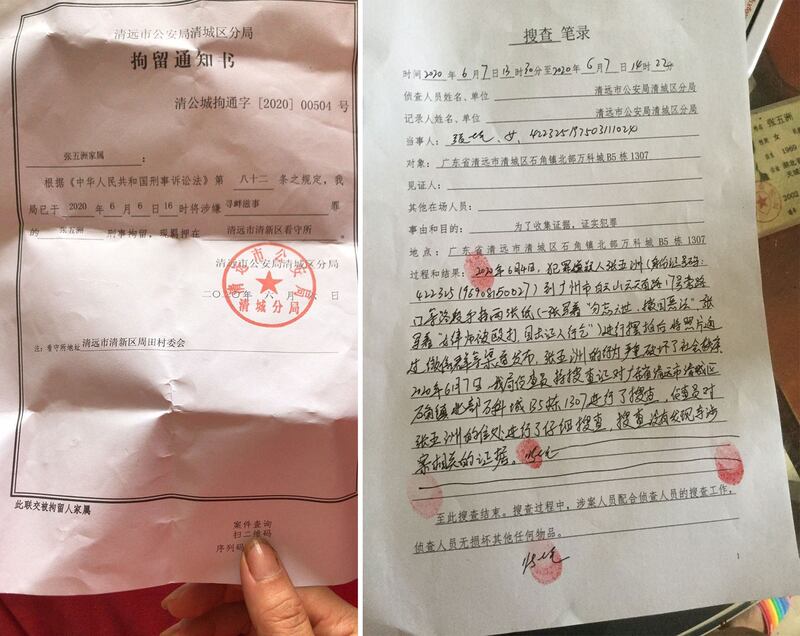 清远市公安局清城区分局
拘留通知书
清公城拘通字 [2020] 00504 号
张五洲家属 :
根据《中华人民共和国刑事诉讼法》第 八十二 条之规定，我
局已于 2020 年 6 月 6 日 16 时将涉嫌 寻衅滋事 罪
的 张五洲 刑事拘留，现羁押在 清远市清新区看守所
清远市公安局清城区分局
二〇二〇年 六 月 六 日
清远市公安局
清城分局
注：看守所地址清远市清新区周田村委会
此联交被拘留人家属
案件查询
扫二维码
序列码
搜查 笔录
时间2020 年 6 月 7 日 13 时30分至2020 年 6 月 7 日 14时 22分
侦查人员姓名、单位 清远市公安局清城区分局
记录人员姓名、单位 清远市公安局清城区分局
当事人：
对象：广东省清远市清城区石角镇北部万科城B5栋1307
见证人：
其他在场人员：
事由和目的： 为了收集证据，证实犯罪
地点：广东省清远市清城区石角镇北部万科城B5栋1307
过程和结果：2020年6月4日，犯罪嫌疑人张五洲（身份证号码：
）到广州市白云山
门等路段手持两张纸（一张写着“勿忘六四，撤回恶法”，
写着“女律师被殴打，目击证人行乞”）进行摆拍后将照片通
过微信群等渠道发布，张五洲的行为严重破坏了社会秩序
2020年6月7日，我局侦查员持搜查证对广东省清远市清城区
石角镇北部万科城B5栋1307进行了搜查，侦查员对
张五洲的住处进行了仔细搜查，搜查没有发现与涉
案相关的证据。
至此搜查结束。搜查过程中，涉案人员配合侦查人员的搜查工作，
侦查人员无损坏其他任何物品。
1
张五洲
女
1969
2002